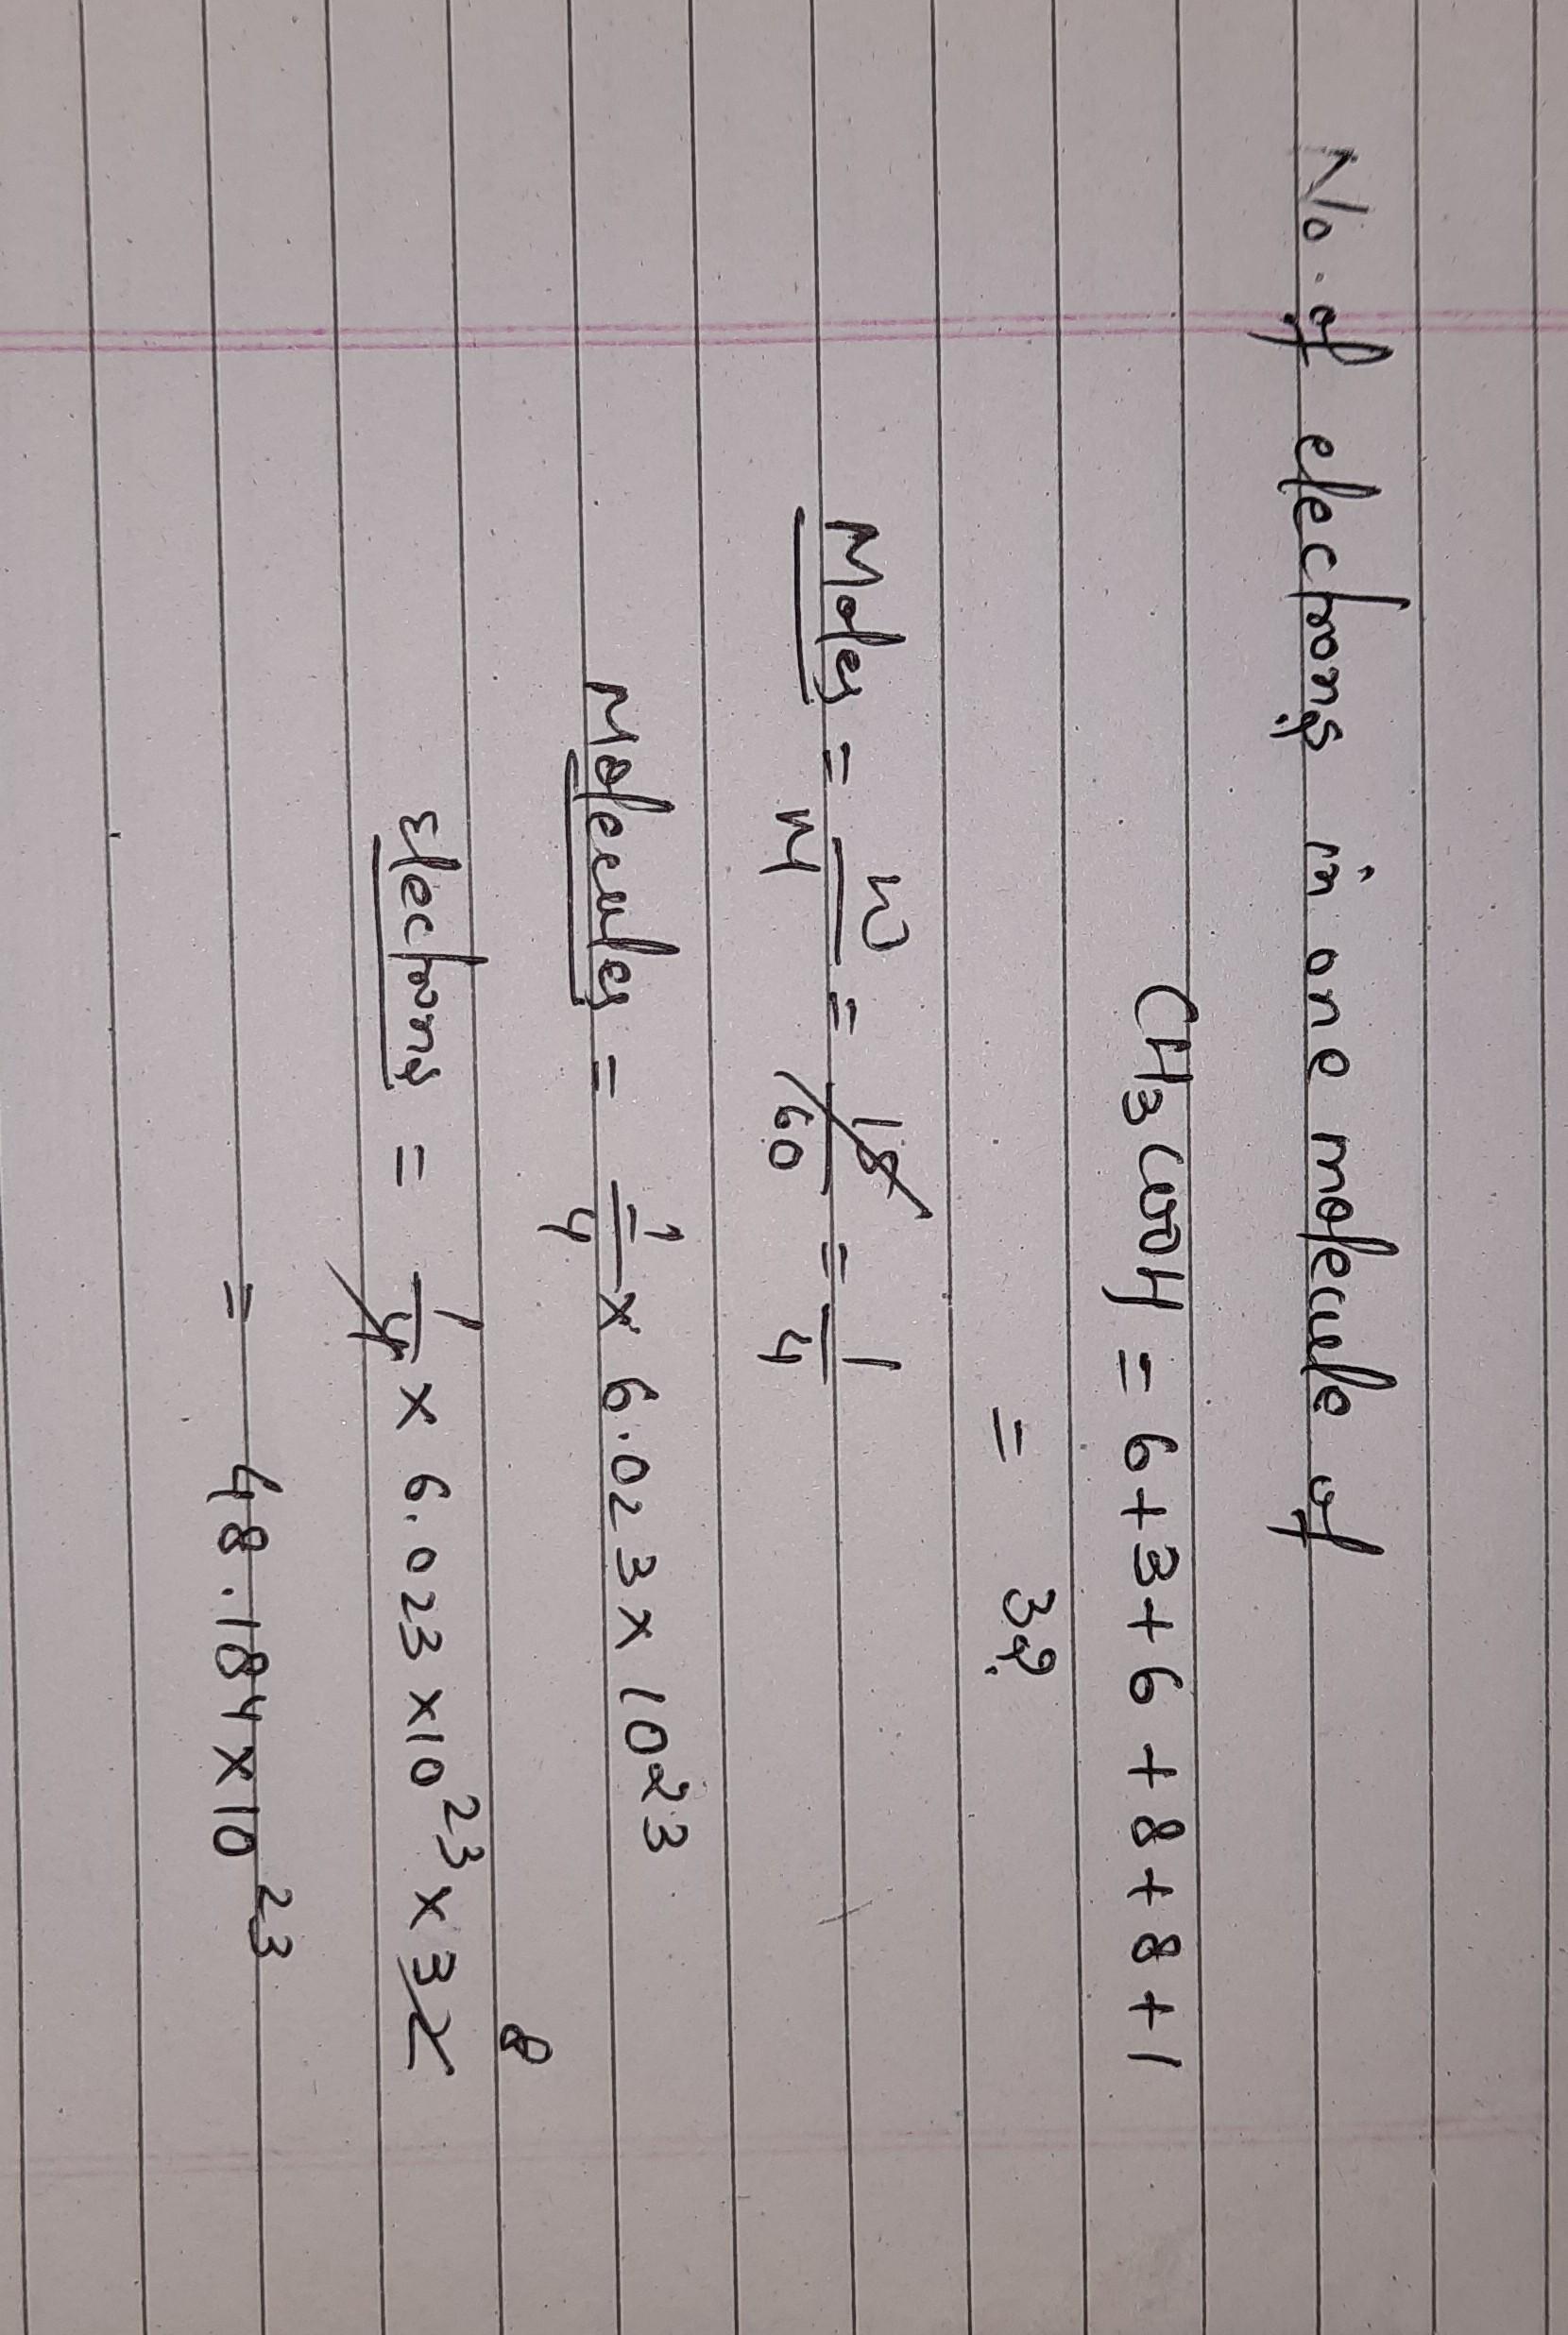 No. of electrons in one molecule of
CH3COOH = 6+3+6+8+8+1
= 32
Moles = W/M = 15/60 = 1/4
Molecules = 1/4 × 6.023 × 10^23
Electrons = 1/4 × 6.023 × 10^23 × 32 8
= 48.184 × 10^23